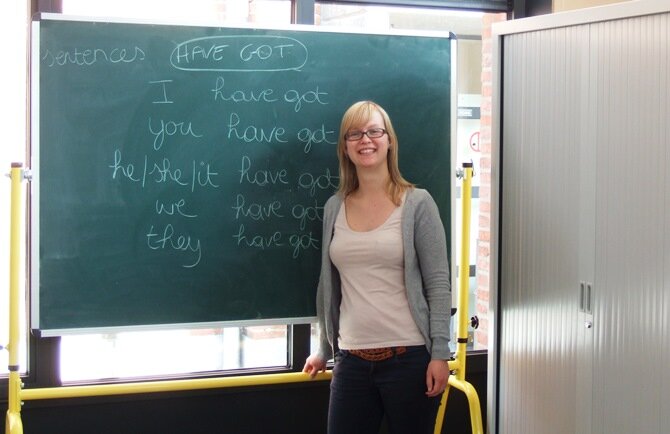 sentences HAVE GOT
I have got
you have got
he/she/it have got
we have got
they have got